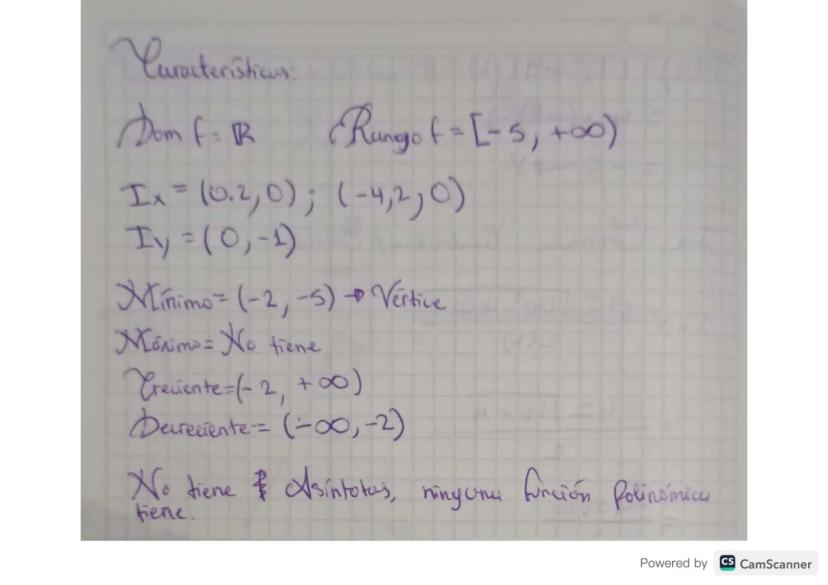 Características:
Dom f = ℝ Rango f = [-5, +∞)
Ix = (0.2, 0) ; (-4,2, 0)
Iy = (0, -1)
Mínimo = (-2, -5) → Vértice
Máximo = No tiene
Creciente = (-2, +∞)
Decreciente = (-∞, -2)
No tiene Asíntotas, ninguna función Polinómica
tiene.
Powered by CS CamScanner